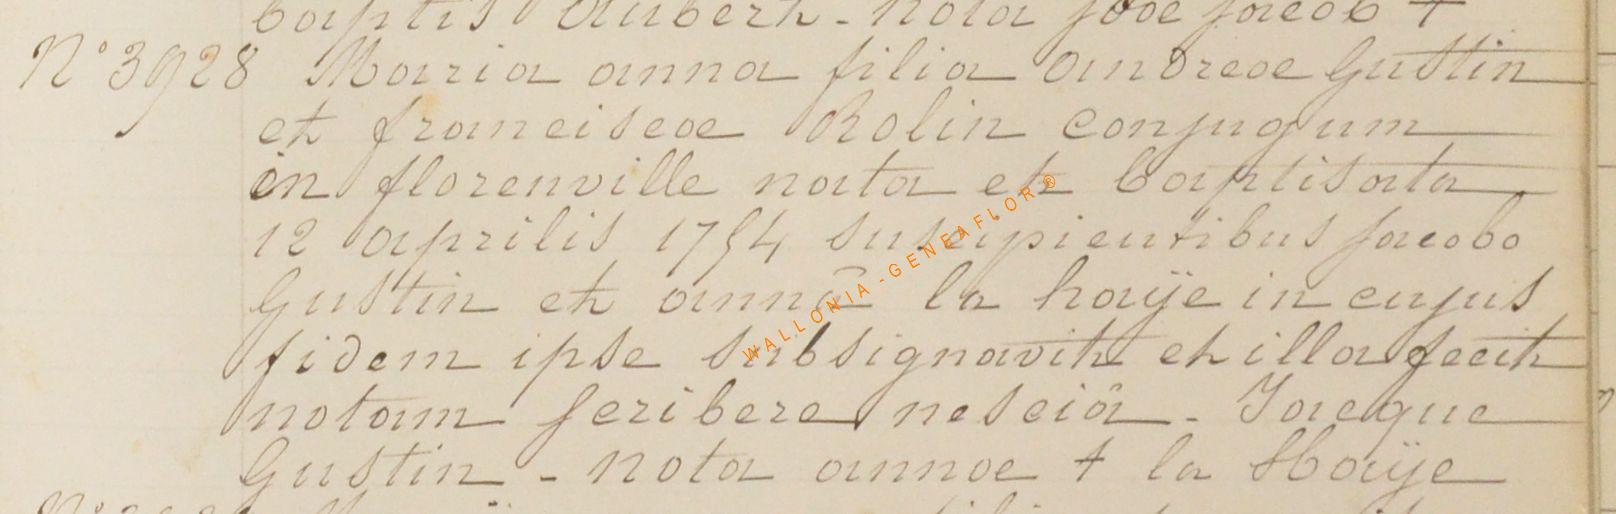 baptis aubert - nota jose jacob +
N° 3928 Maria anna filia andreae Gustin
et franciscae Rolin conjugum
in florenville nata et baptisata
12 aprilis 1754 suscipientibus jacobo
Gustin et annâ la haÿe in cujus
fidem ipse subsignavit et illa fecit
notam scribere nesciâ - Jacque
Gustin - nota annae + la Haÿe
WALLONIA - GENEAFLOR®